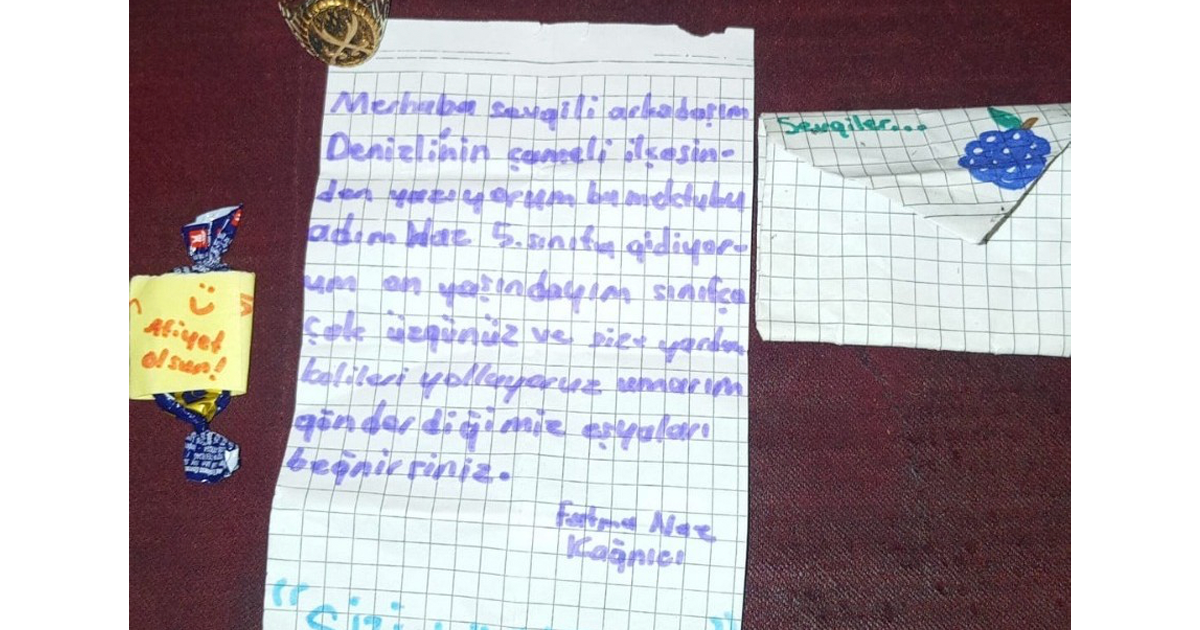 Merhaba sevgili arkadaşım
Denizli'nin çameli ilçesin-
den yazıyorum bu mektubu
adım Naz 5. sınıfa gidiyor-
um on yaşındayım sınıfça
çok üzgünüz ve size yardım
kolileri yolluyoruz umarım
gönderdiğimiz eşyaları
beğnirsiniz.
Fatma Naz
Kağnıcı
Sevgiler...
Afiyet
olsun!
"Sizi